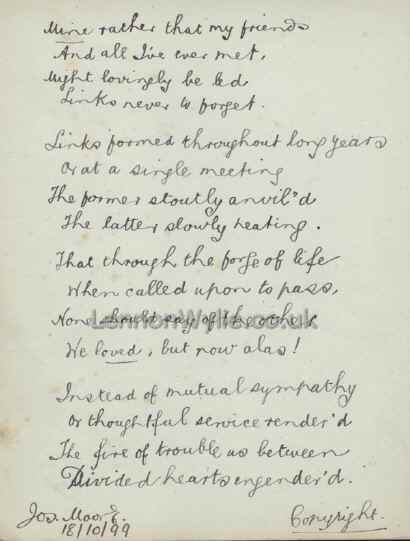 Mine rather that my friends
And all I've ever met,
Might lovingly be led
Links never to forget.
Links formed throughout long years
Or at a single meeting
The former stoutly anvil'd
The latter slowly heating.
That through the forge of life
When called upon to pass,
None should say of the other
LennonWylie.co.uk
We loved, but now alas!
Instead of mutual sympathy
Or thoughtful service render'd
The fire of trouble us between
Divided hearts engender'd.
Jos. Moore.
18/10/99
Copyright.